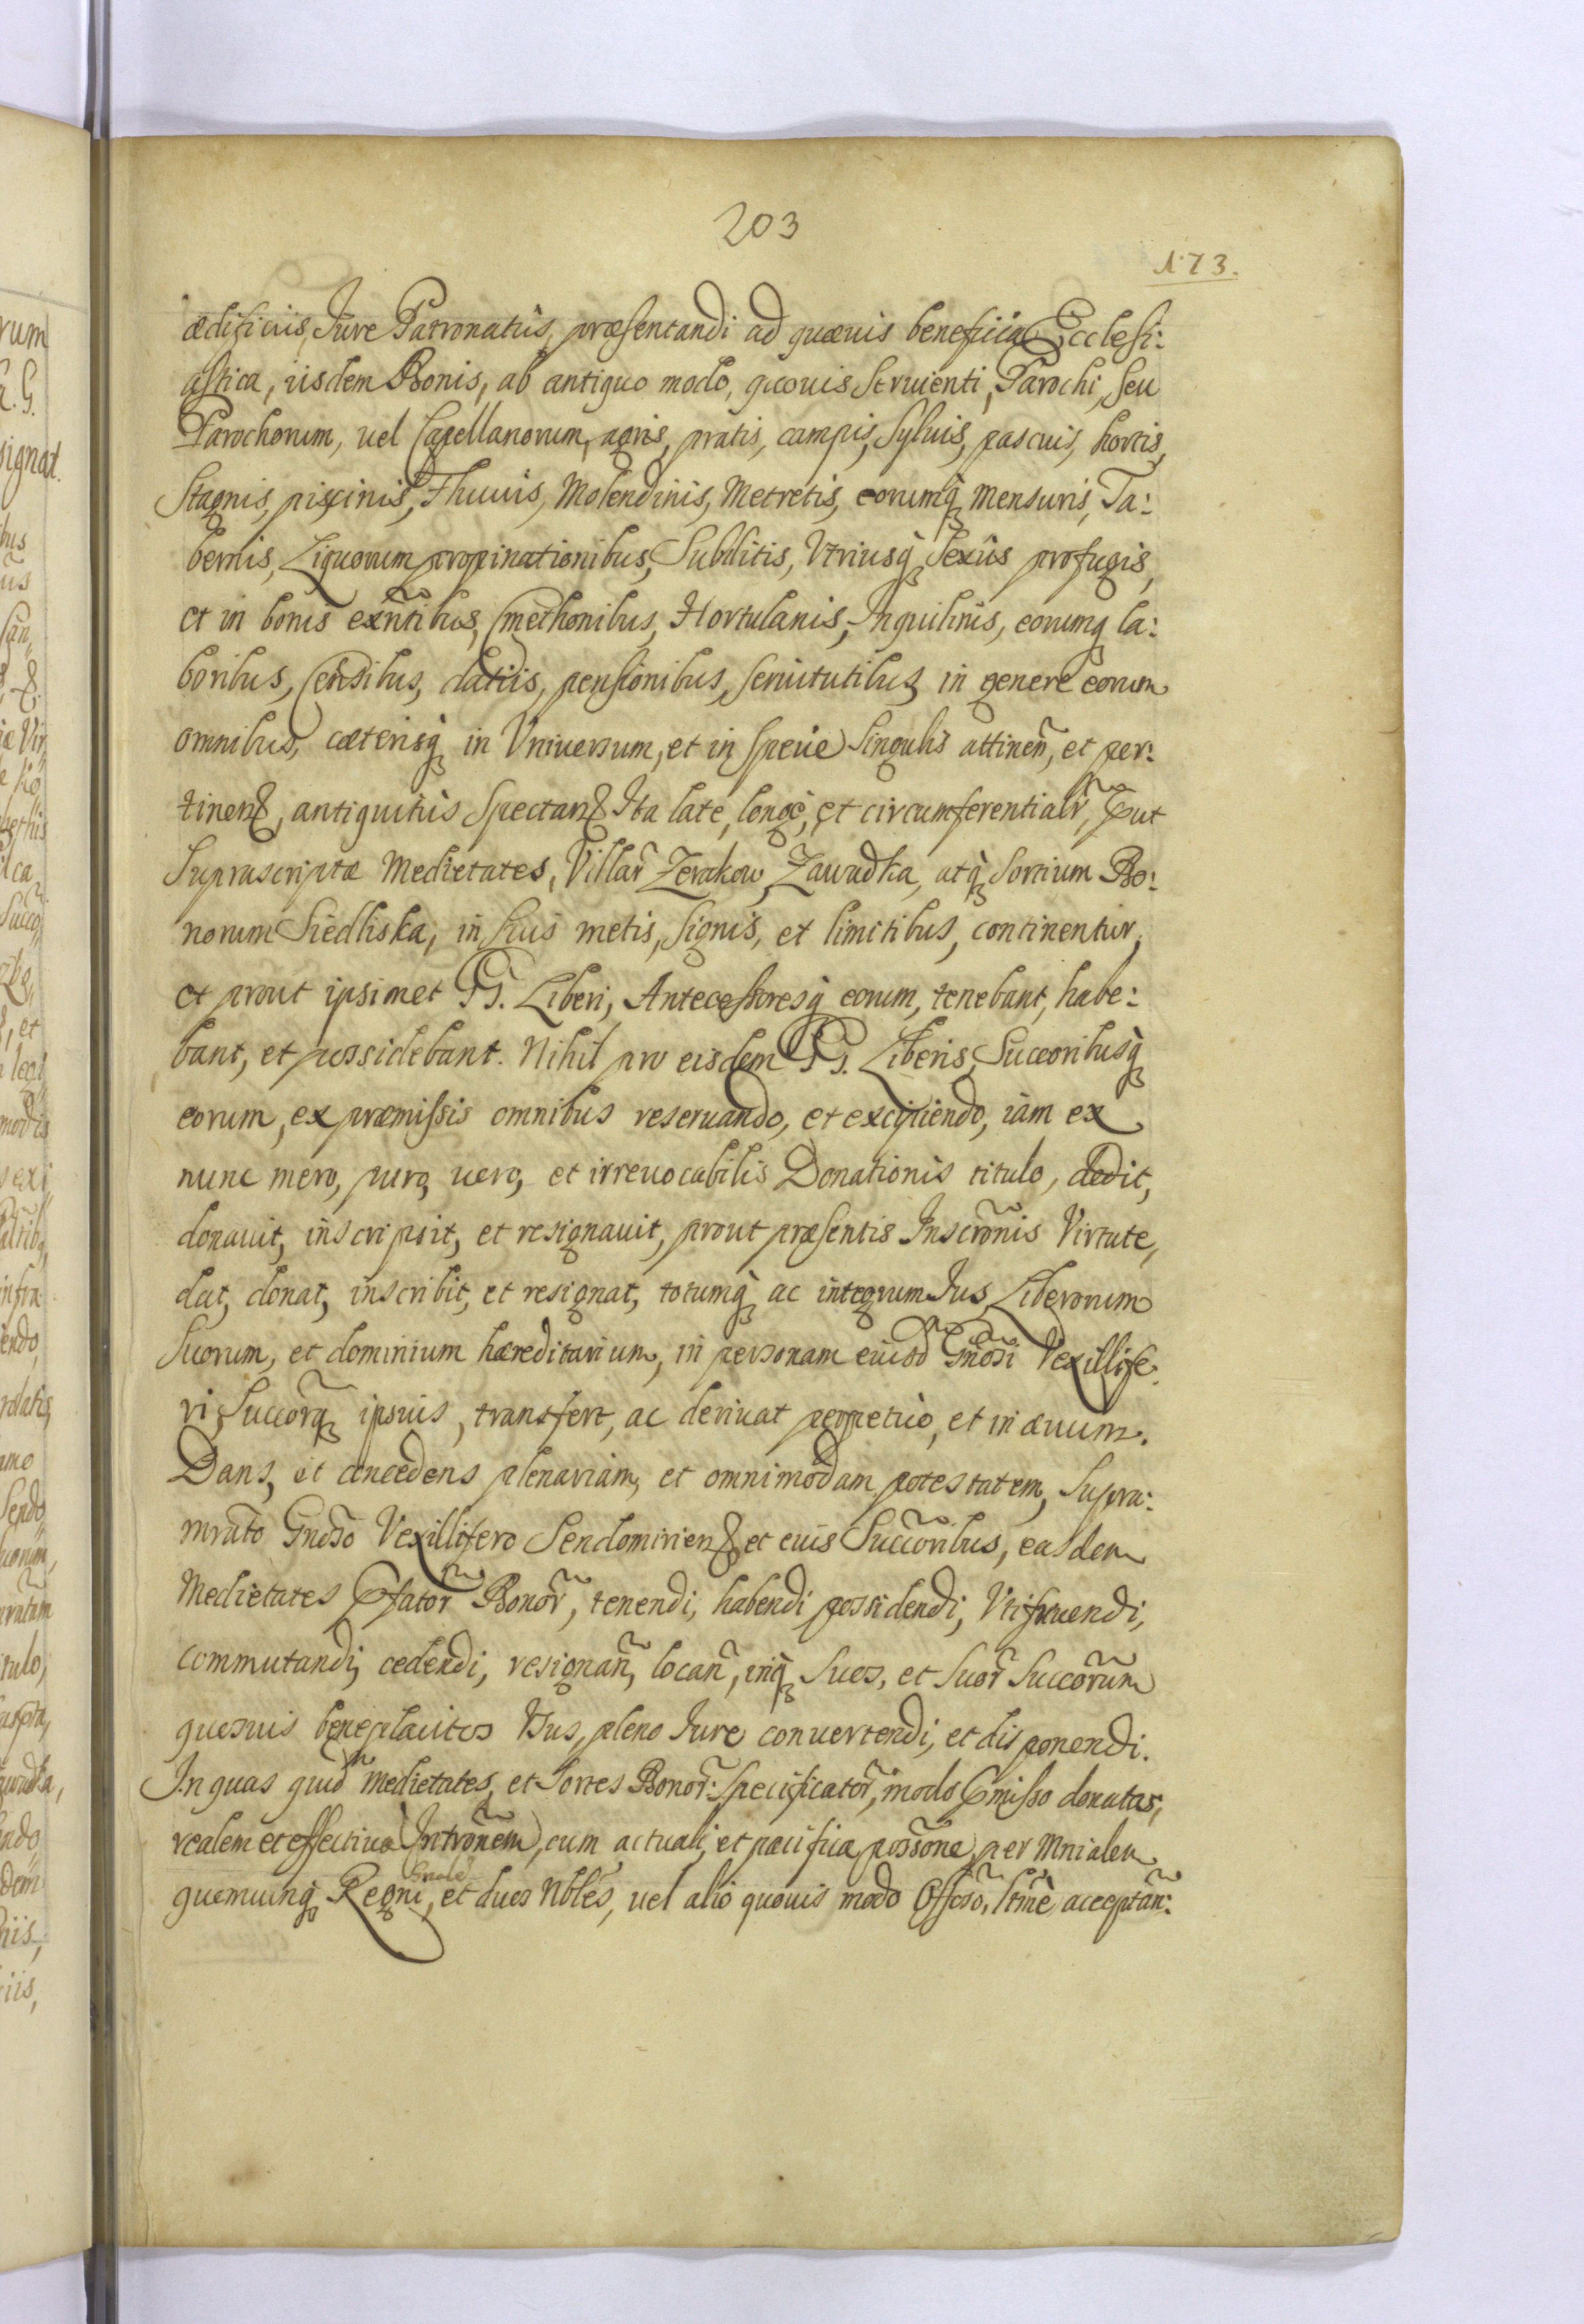 203
173.
ædificiis, Jure Patronatûs, præsentandi ad quævis beneficia Ecclesi:
astica, iisdem Bonis, ab antiquo modo, quovis Seruienti, Parochi, seu
Parochorum, vel Capellanorum, agris, pratis, campis, Sylvis, pascuis, hortis,
Stagnis, piscinis, Fluuiis, Molendinis, Metretis, eorumq́ mensuris, Ta:
bernis, Liquorum propinationibus, Subditis, Vtriusq́ Sexûs profugis,
et in bonis exñtibus, Cmethonibus, Hortulanis, Inquilinis, eorumq́ la:
boribus, Censibus, datiis, pensionibus, seruitutibus, in genere eorum
omnibus, cæterisq́ in Vniuersum, et in specie Singulis attineñ, et per:
tinenz, antiquitùs Spectanz. Ita late, longè, et circumferentialr̃, ꝓut
Suprascriptæ Medietates, Villar̃ Zerakow, Zawadka, atq́ Sortium Bo:
norum Siedliska, in Suis metis, Signis, et limitibus, continentur,
et prout ipsimet GG. Liberi, Antecessoresq́ eorum, tenebant, habe:
bant, et possidebant. Nihil pro eisdem GG. Liberis, Succoribusq́
eorum, ex præmissis omnibus reseruando, et excipiendo, iàm ex
nunc mero, puro, uero, et irreuocabilis Donationis titulo, dedit,
donauit, inscripsit, et resignauit, prout præsentis Inscrõnis Virtute,
dat, donat, inscribit, et resignat, totumq́ ac integrum Jus, Liberorum
Suorum, et dominium hæreditarium, in personam eiusd̃ Gñosi Vexillife:
ri, Succorq́ ipsius, transfert, ac deriuat perpetuò, et in æuum.
Dans, et concedens plenariam, et omnimodam potestatem, Supra:
mrato Gnoso Vexillifero Sendomirienz, et eius Succoribus, easdem
Medietates ꝑfator̃ Bonor̃, tenendi, habendi possidendi, Vtifruendi,
commutandi, cedendi, resignañ, locañ, inq́ Suos, et Suor̃ Succorum
quosuis beneplacitos Vsus, pleno Jure conuertendi, et disponendi.
In quas quid̃ Medietates, et Sortes Bonor̃: Specificator̃, modo ꝑmisso donatas,
realem et effectiuã Intrõnem, cum actuali, et pacifica possõne, per Mnialem
quemcunq́ Regni, Gnale et duos Nbles, uel alio quouis modo Offoso, ltmè acceptan: